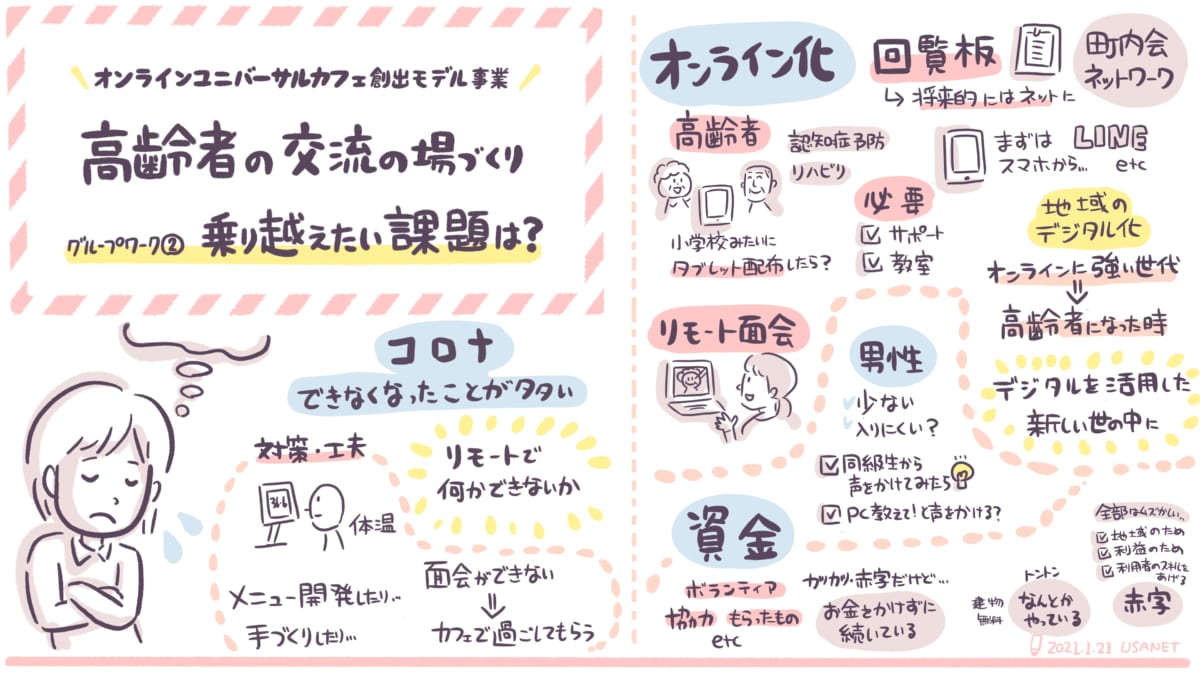 オンラインユニバーサルカフェ創出モデル事業
高齢者の交流の場づくり
グループワーク② 乗り越えたい課題は?
コロナ
できなくなったことが多い
対策・工夫
36.6
体温
リモートで
何かできないか
メニュー開発したり..
手づくりしたり...
面会ができない
カフェで過ごしてもらう
オンライン化
回覧板
↳ 将来的にはネットに
町内会
ネットワーク
高齢者
認知症予防
リハビリ
小学校みたいに
タブレット配布したら?
必要
サポート
教室
まずは LINE
スマホから... etc
地域の
デジタル化
オンラインに強い世代
高齢者になった時
デジタルを活用した
新しい世の中に
リモート面会
男性
少ない
入りにくい?
同級生から
声をかけてみたら
PC教えて!と声をかける?
資金
ボランティア
協力 もらったもの
etc
カツカツ・赤字だけど...
お金をかけずに
続いている
建物
無料
トントン
なんとか
やっている
全部はムズかしい..
地域のため
利益のため
利用者のスキルを
あげる
赤字
2021.1.21 USANET